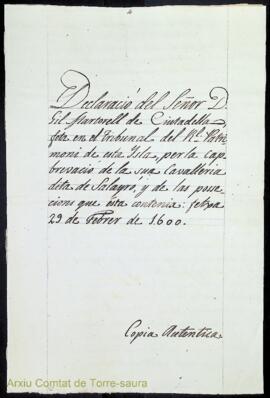 Declaració del Señor D.
Gil Martorell de Ciutadella
feta en el tribunal del Rl. Patri-
moni de esta Isla, per la cap-
brevació de la sua Cavalleria
dita de Salayró, y de las posse-
cions que esta contenia: fetxa
29 de Febrer de 1600.
Copia Autentica
Arxiu Comtat de Torre-saura